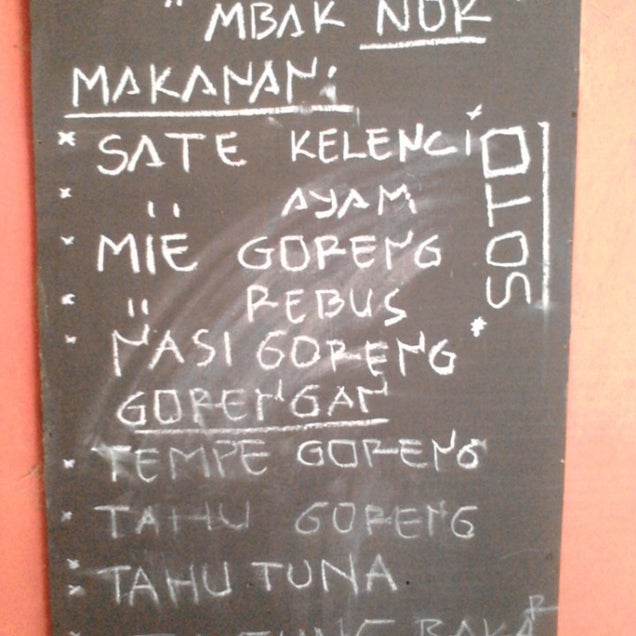 " MBAK NOK
MAKANAN:
* SATE KELENCI *
* ıı AYAM
* MIE GORENG
* ıı REBUS
* NASI GORENG *
SOTO
GORENGAN
* TEMPE GORENG
* TAHU GORENG
* TAHU TUNA
BAKAR